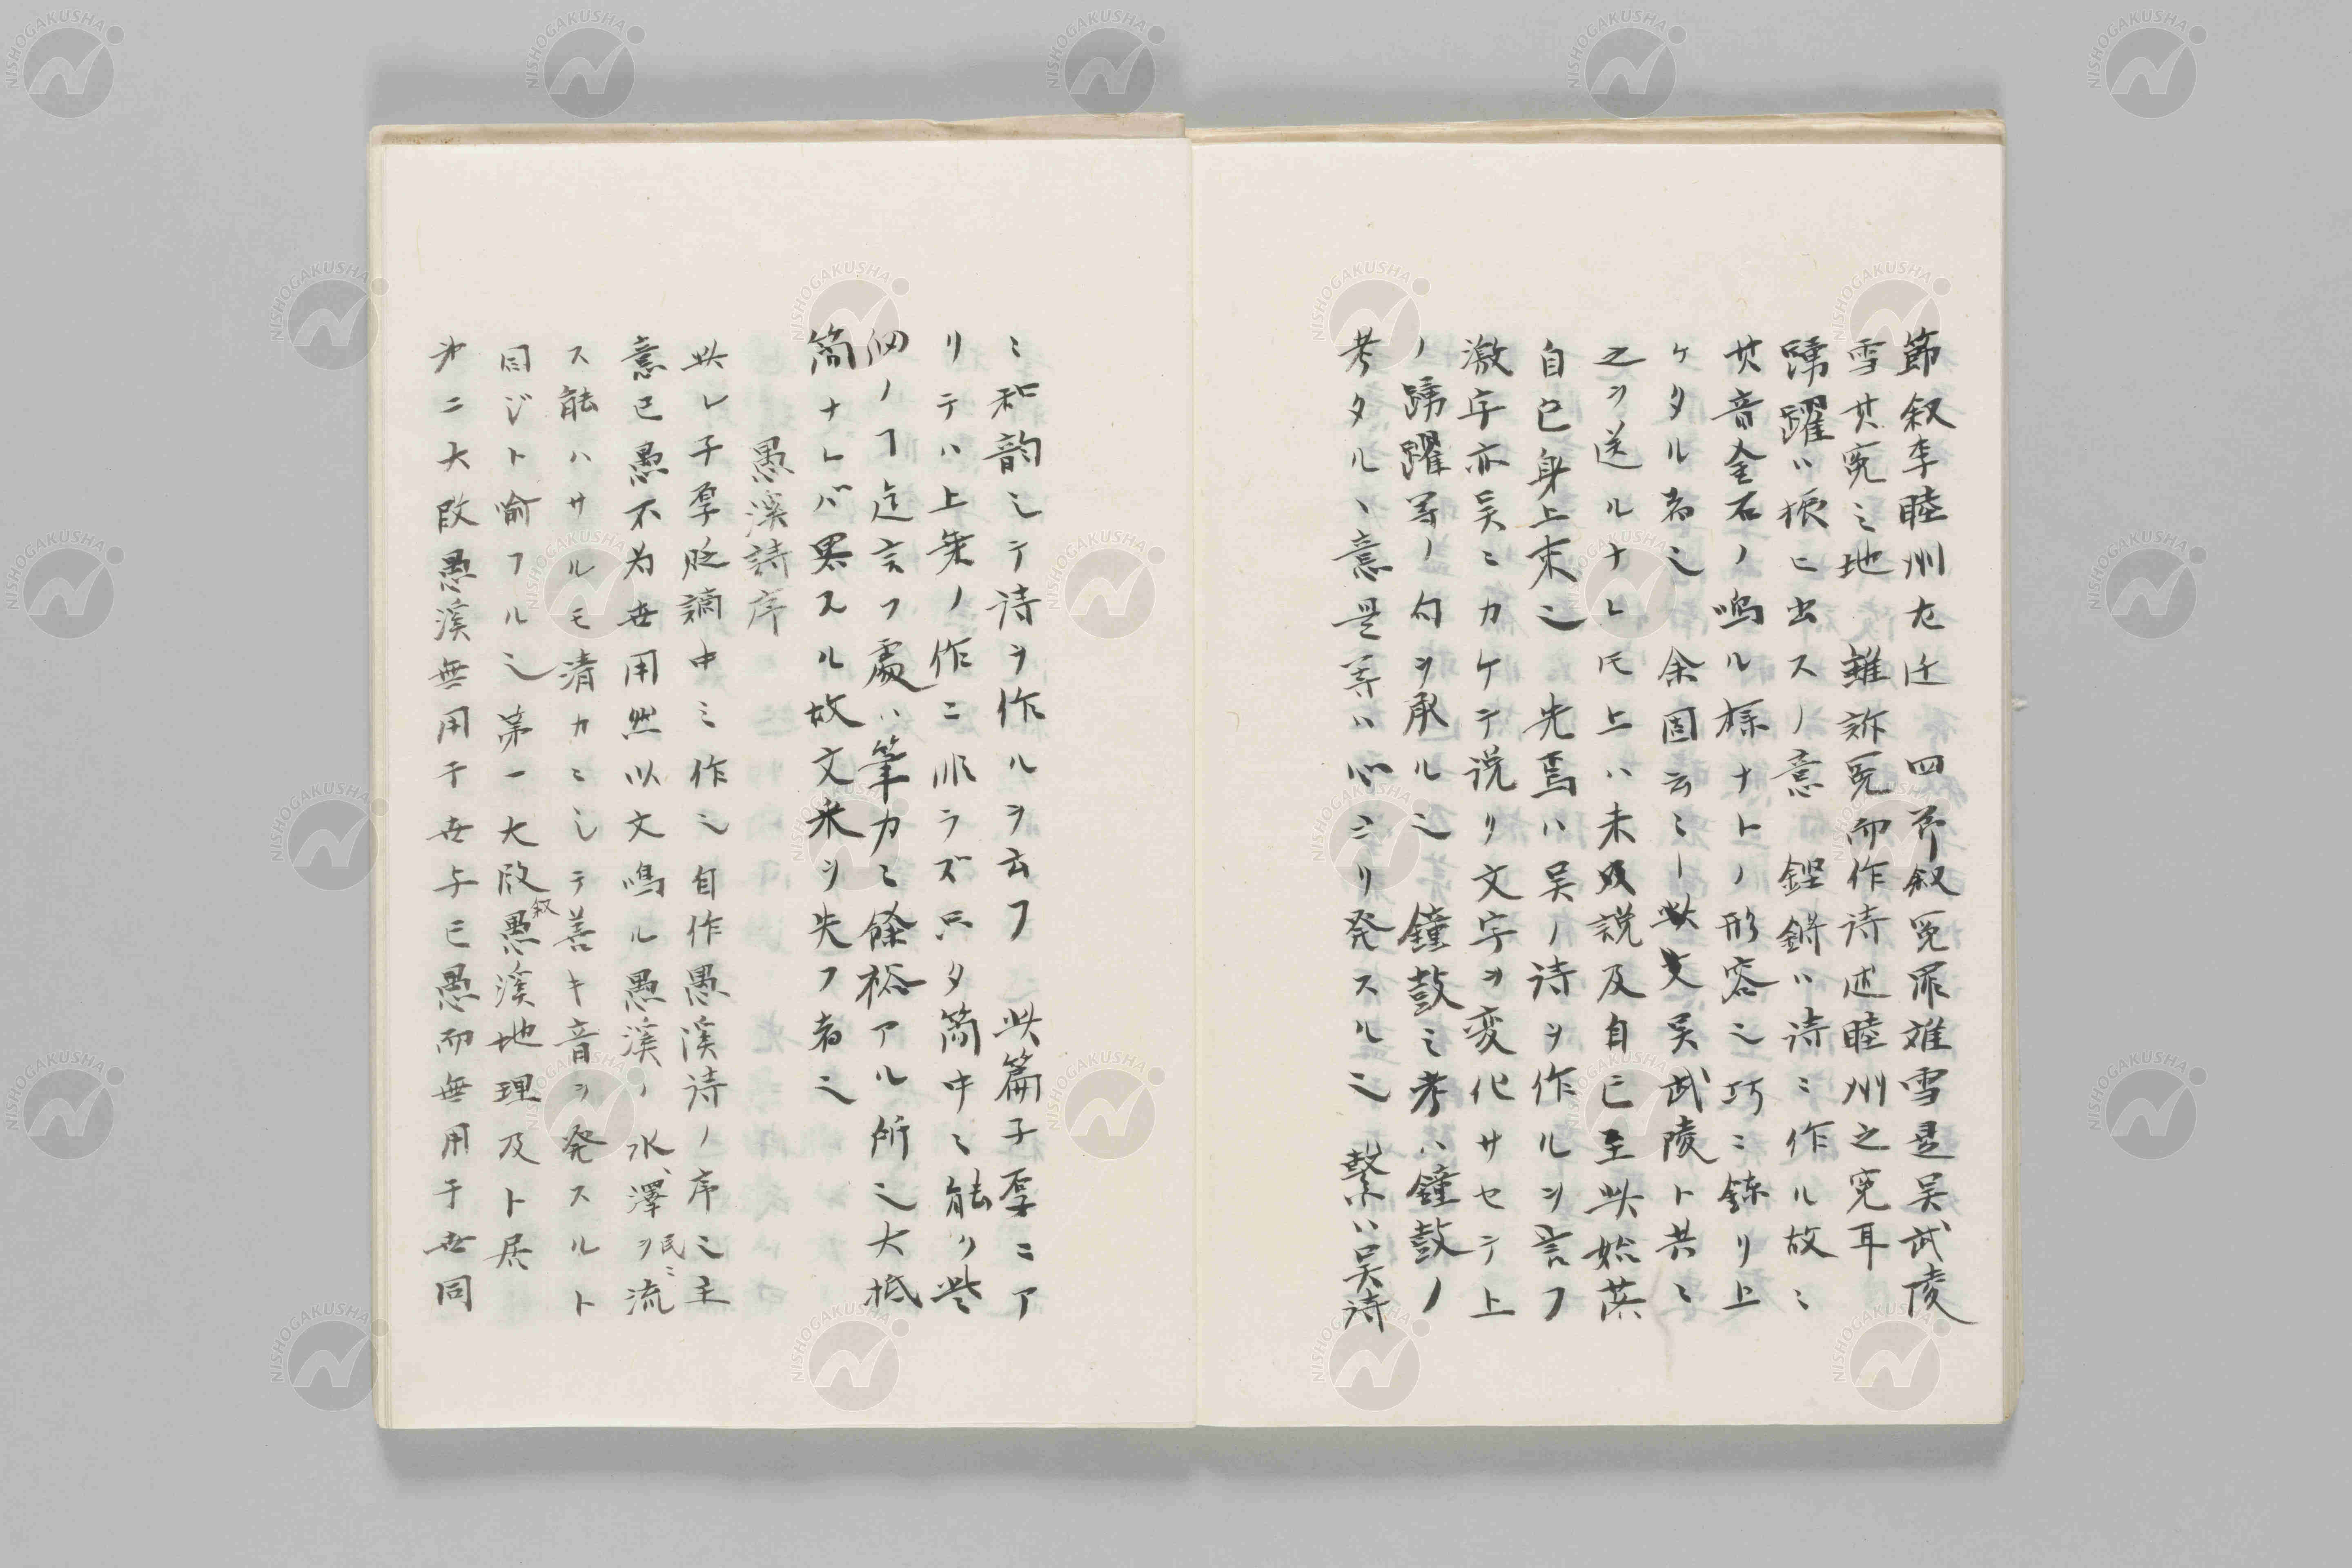 節叙李睦州左迁 四節叙冤罪雖雪是吴武陵
雪其冤ミ地 雖訴冤而作诗述睦州之冤耳
踴躍ハ振ヒ出スノ意 鏗鏘ハ诗ミ作ル故ミ
其音金石ノ鳴ル様ナトノ形容之巧ミ錬リ上
ケタル者之 余固云ミー此文吴武陵ト共ミ
之ヲ送ルナレ𪜈上ハ未及説及自己至此始茲
自己身上来之 先焉ハ吴ノ诗ヲ作ルヲ言フ
激字亦吴ミカケテ说リ文字ヲ変化サセテ上
ノ踴躍等ノ句ヲ承ル之 鐘鼓ミ考ハ鐘鼓ノ
考タルヽ意是等ハ心ヨリ発スル之 繋ハ吴诗
ミ和韵シテ诗ヲ作ルヲ云フ 此篇子厚ニア
リテハ上乗ノ作ニ非ラズ只タ簡中ミ能ク些
細ノ𠃍迄言フ處ハ筆力ミ餘裕アル所之大抵
簡ナレバ畧スル故文来ヲ失フ者之
愚溪詩序
此レ子厚貶謫中ミ作之自作愚溪诗ノ序之主
意已愚不为世用然以文鳴ル愚溪ノ水、澤ヲ民ニ流
ス能ハサルモ清カミシテ善キ音ヲ発スルト
同ジト喻フル之第一大段叙愚溪地理及卜居
第二大段愚溪無用于世与己愚而無用于世同